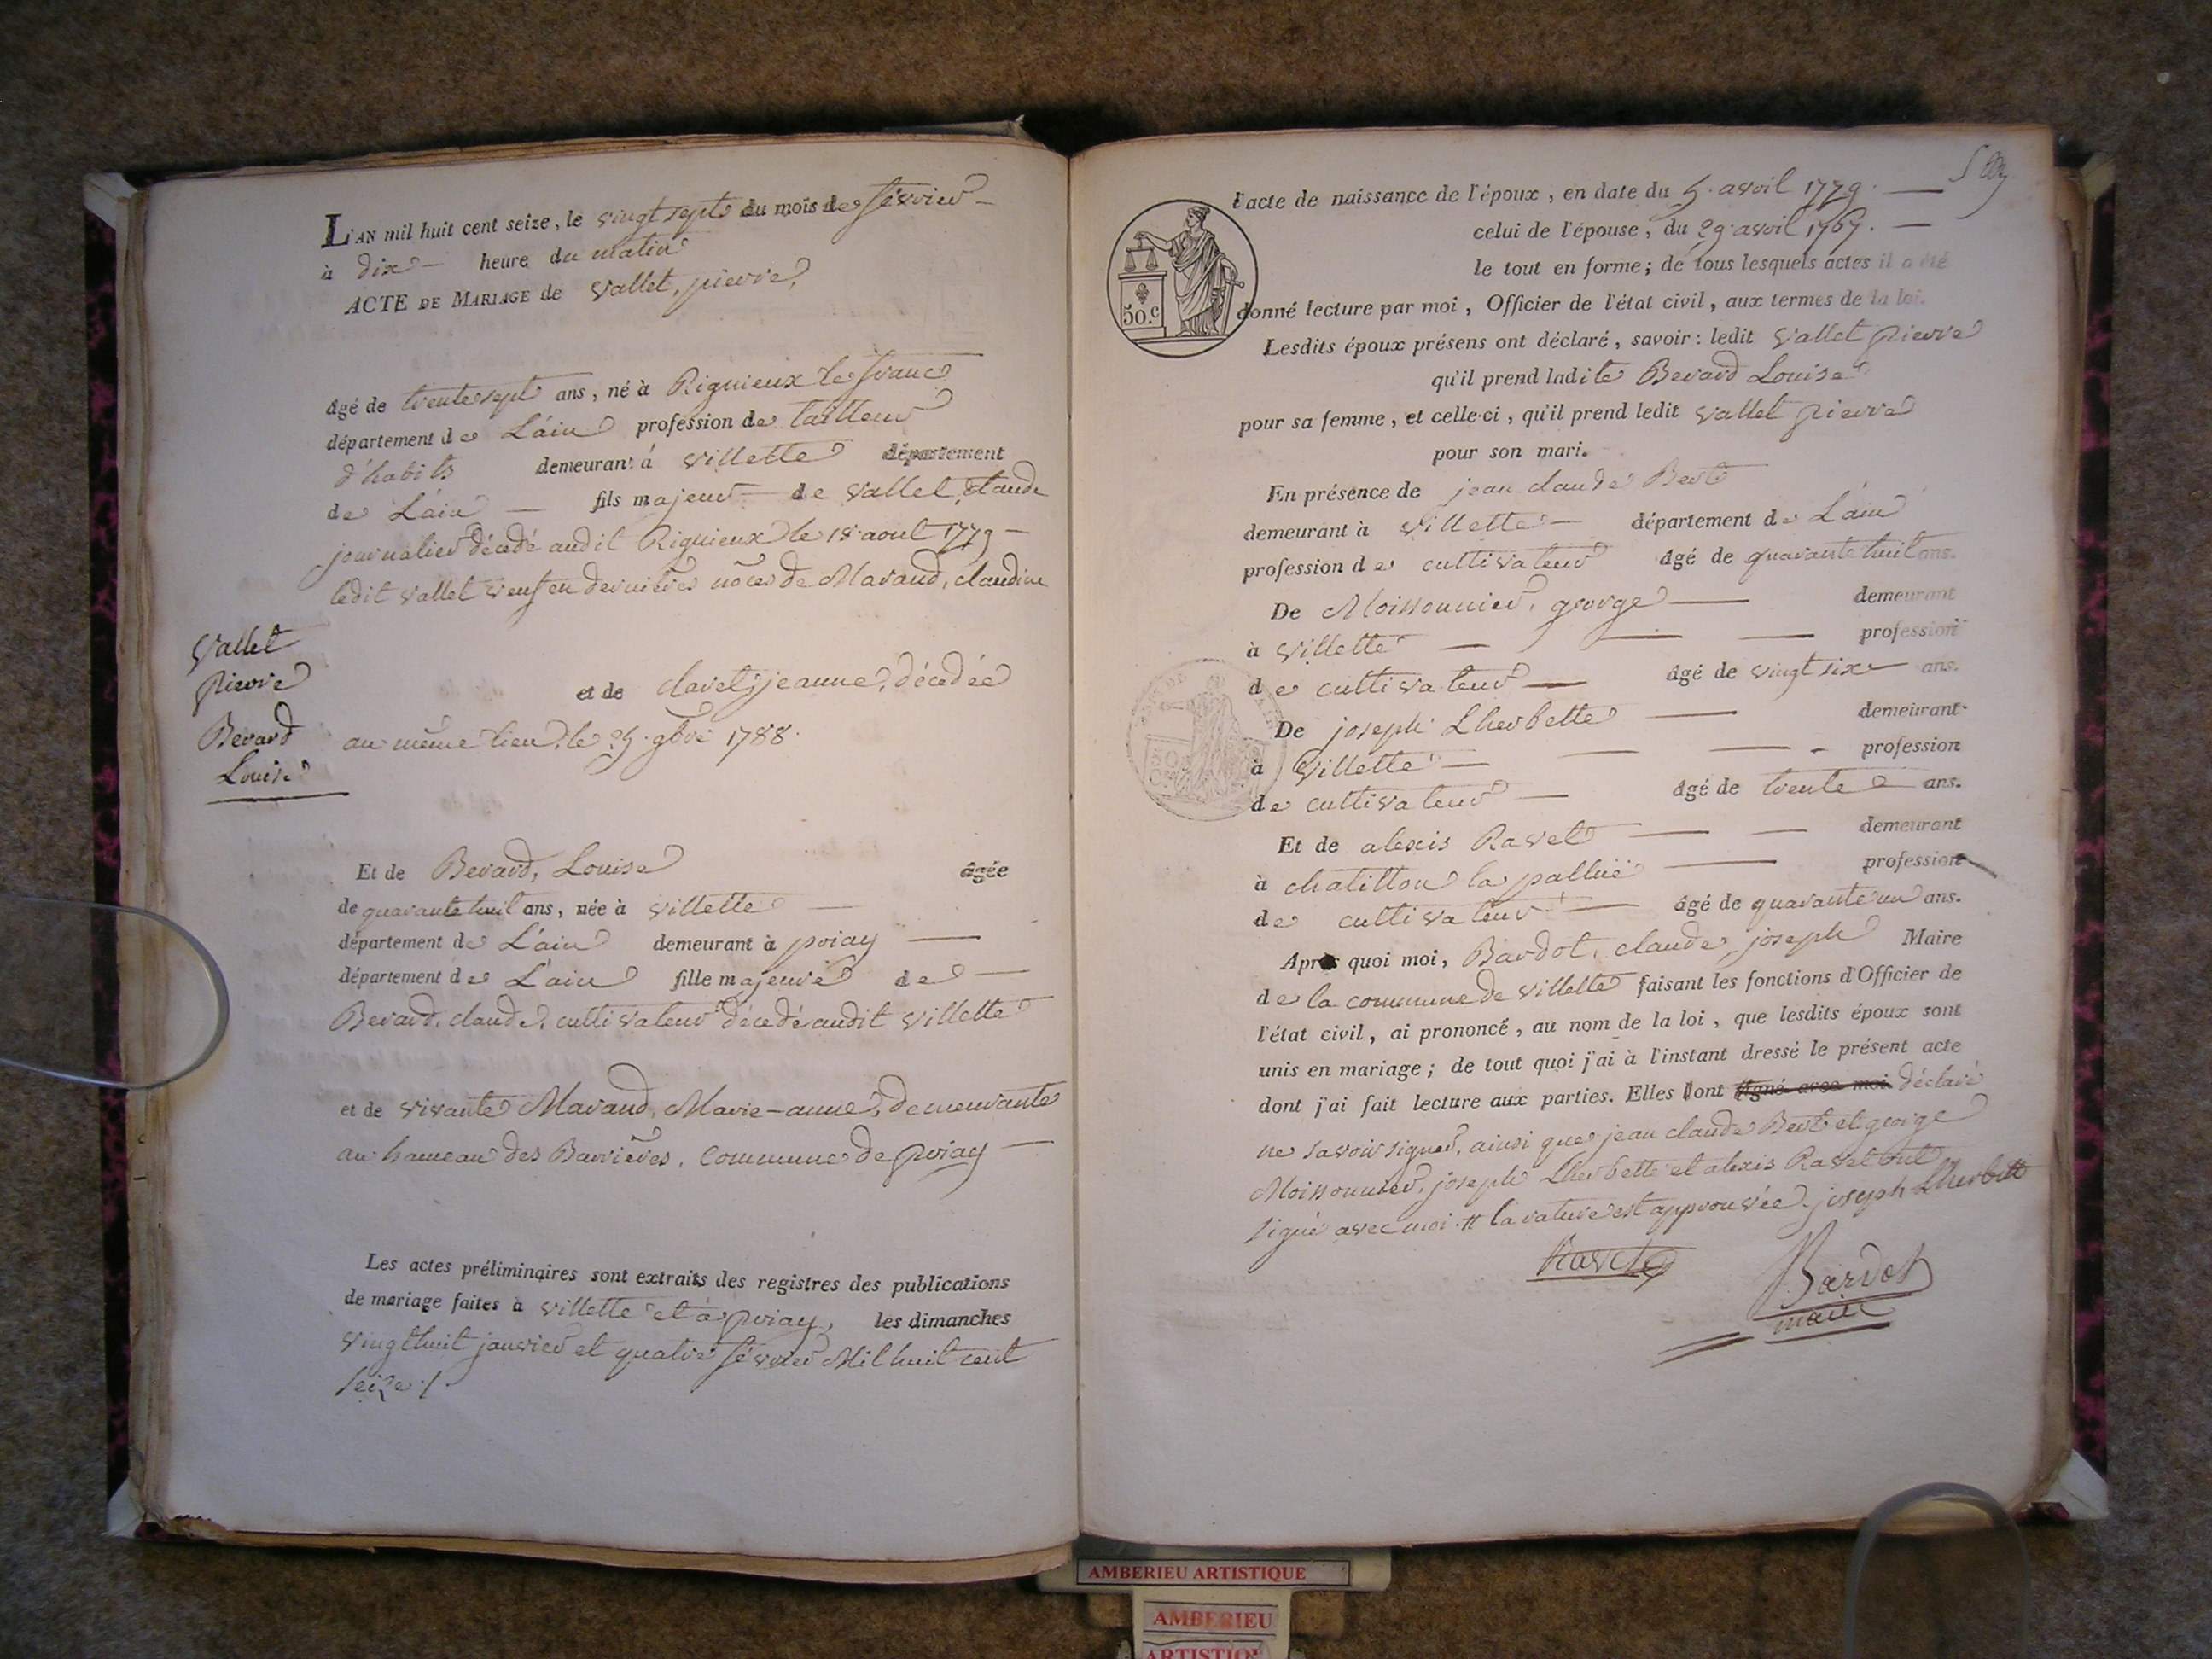 L'AN mil huit cent seize, le vingt sept du mois de février
à dix heure du matin
ACTE DE MARIAGE de Vallet, pierre,
âgé de trente sept ans, né à Rignieux le franc
département de L'ain profession de tailleur
d'habits demeurant à villette département
de L'ain fils majeur de vallet, claude
journalier décédé audit Rignieux le 18 aout 1779
ledit vallet veuf en dernières nôces de Marand, claudine
Vallet
pierre
Berard
Louise
et de clavel, jeanne, décédée
au même lieu, le 25 9bre 1788.
Et de Berard, Louise âgée
de quarante huit ans, née à villette
département de L'ain demeurant à priay
département de L'ain fille majeure de
Berard, claude, cultivateur décédé audit villette
et de vivante Marand, Marie-anne, demeurante
au hameau des Barrières, commune de priay
Les actes préliminaires sont extraits des registres des publications
de mariage faites à villette et à priay, les dimanches
vingt huit janvier et quatre février Mil huit cent
seize./.
l'acte de naissance de l'époux, en date du 5. avril 1779.
celui de l'épouse, du 29 avril 1767.
le tout en forme; de tous lesquels actes il a été
50.c
donné lecture par moi, Officier de l'état civil, aux termes de la loi.
Lesdits époux présens ont déclaré, savoir: ledit vallet pierre
qu'il prend ladite Berard Louise
pour sa femme, et celle-ci, qu'il prend ledit vallet pierre
pour son mari.
En présence de jean claude Bert
demeurant à villette département de L'ain
profession de cultivateur âgé de quarante huit ans.
De Moissonnier, george demeurant
à villette profession
de cultivateur âgé de vingt six ans.
De joseph Lherbette demeurant
à villette profession
de cultivateur âgé de trente ans.
Et de alexis Ravet demeurant
à chatillon la pallüe profession
de cultivateur âgé de quarante un ans.
Après quoi moi, Bardot, claude, joseph Maire
de la commune de villette faisant les fonctions d'Officier de
l'état civil, ai prononcé, au nom de la loi, que lesdits époux sont
unis en mariage; de tout quoi j'ai à l'instant dressé le présent acte
dont j'ai fait lecture aux parties. Elles ont signé avec moi déclaré
ne savoir signer, ainsi que jean claude Bert et george
Moissonnier, joseph Lherbette et alexis Ravet ont
signé avec moi. # la rature est approuvée. joseph Lherbette
Ravet
Bardot
maire
AMBERIEU ARTISTIQUE
AMBERIEU
ARTISTIQUE